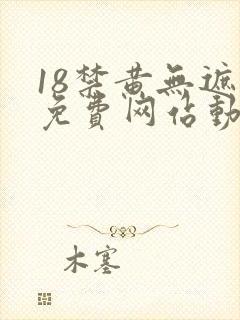 18禁黄無遮
免費网佔動
木塞